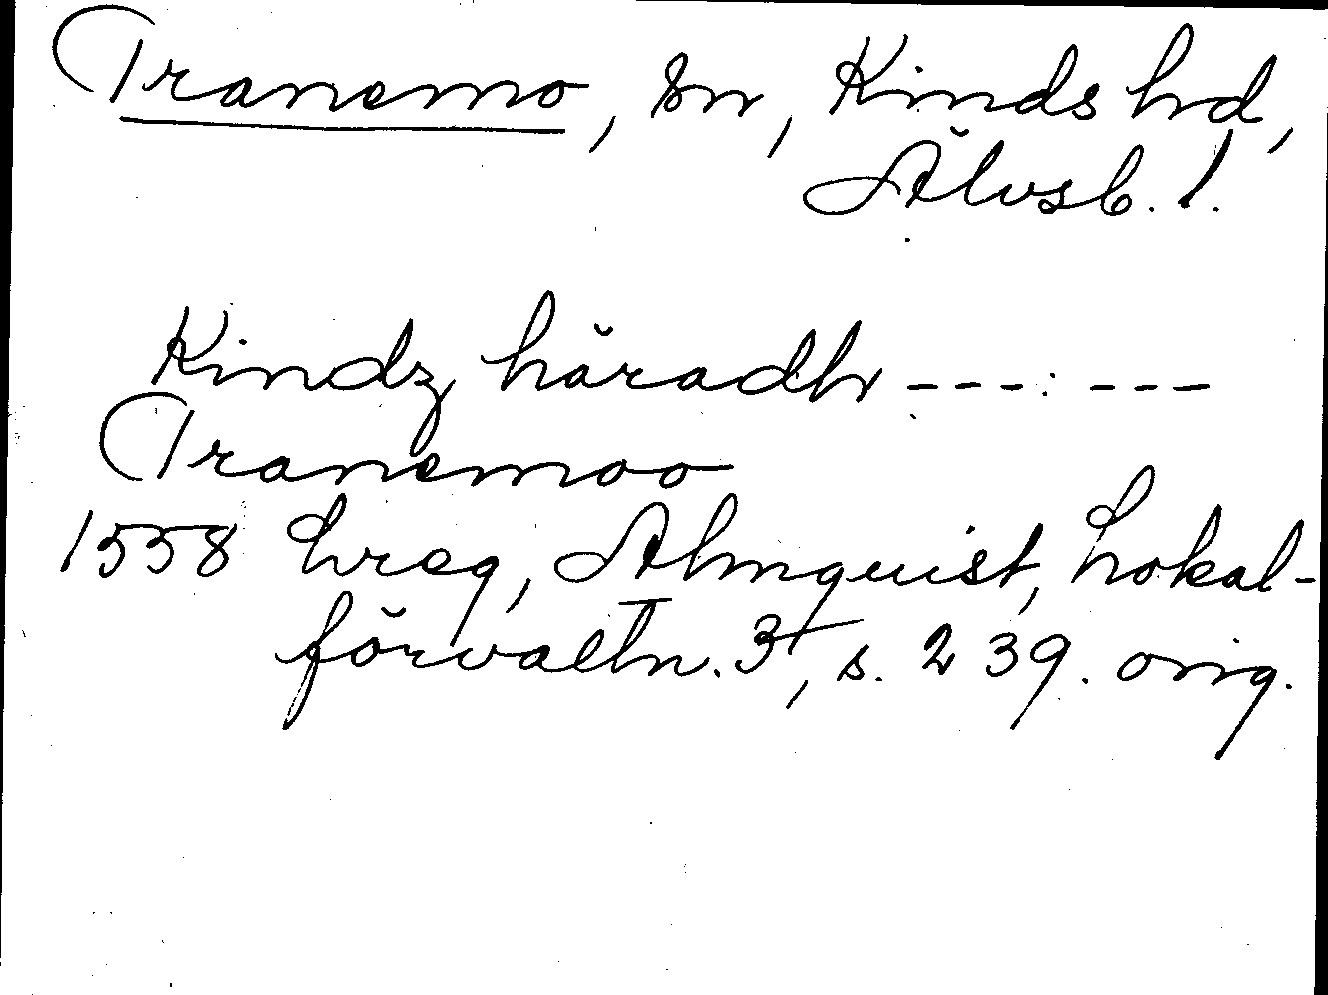 Tranemo, sn, Kinds hd,
Älvsb. l.
Kindz häradh --- : ---
Tranemoo
1558 Lreg, Almquist, Lokal-
förvaltn. 3, s. 239. orig.